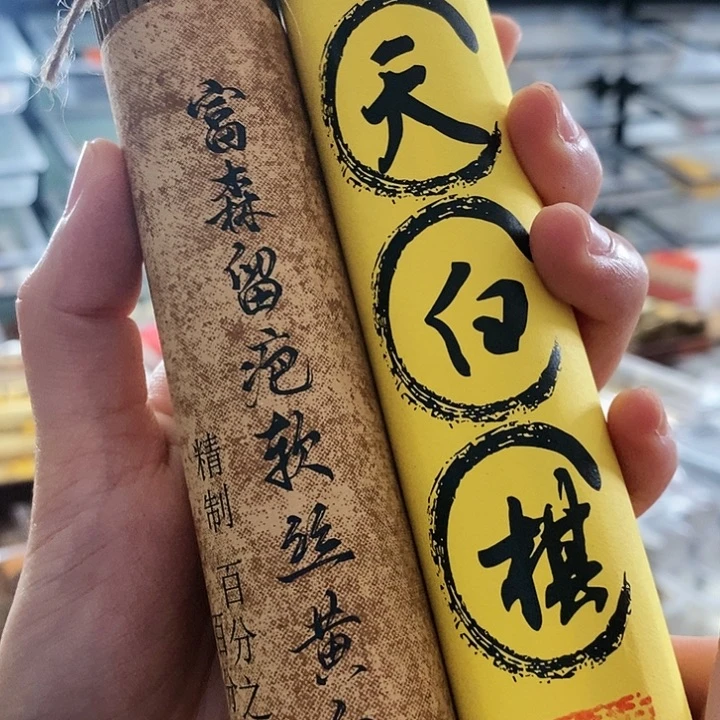 富森留疤软丝黄
精制 百分之
天
白
棋